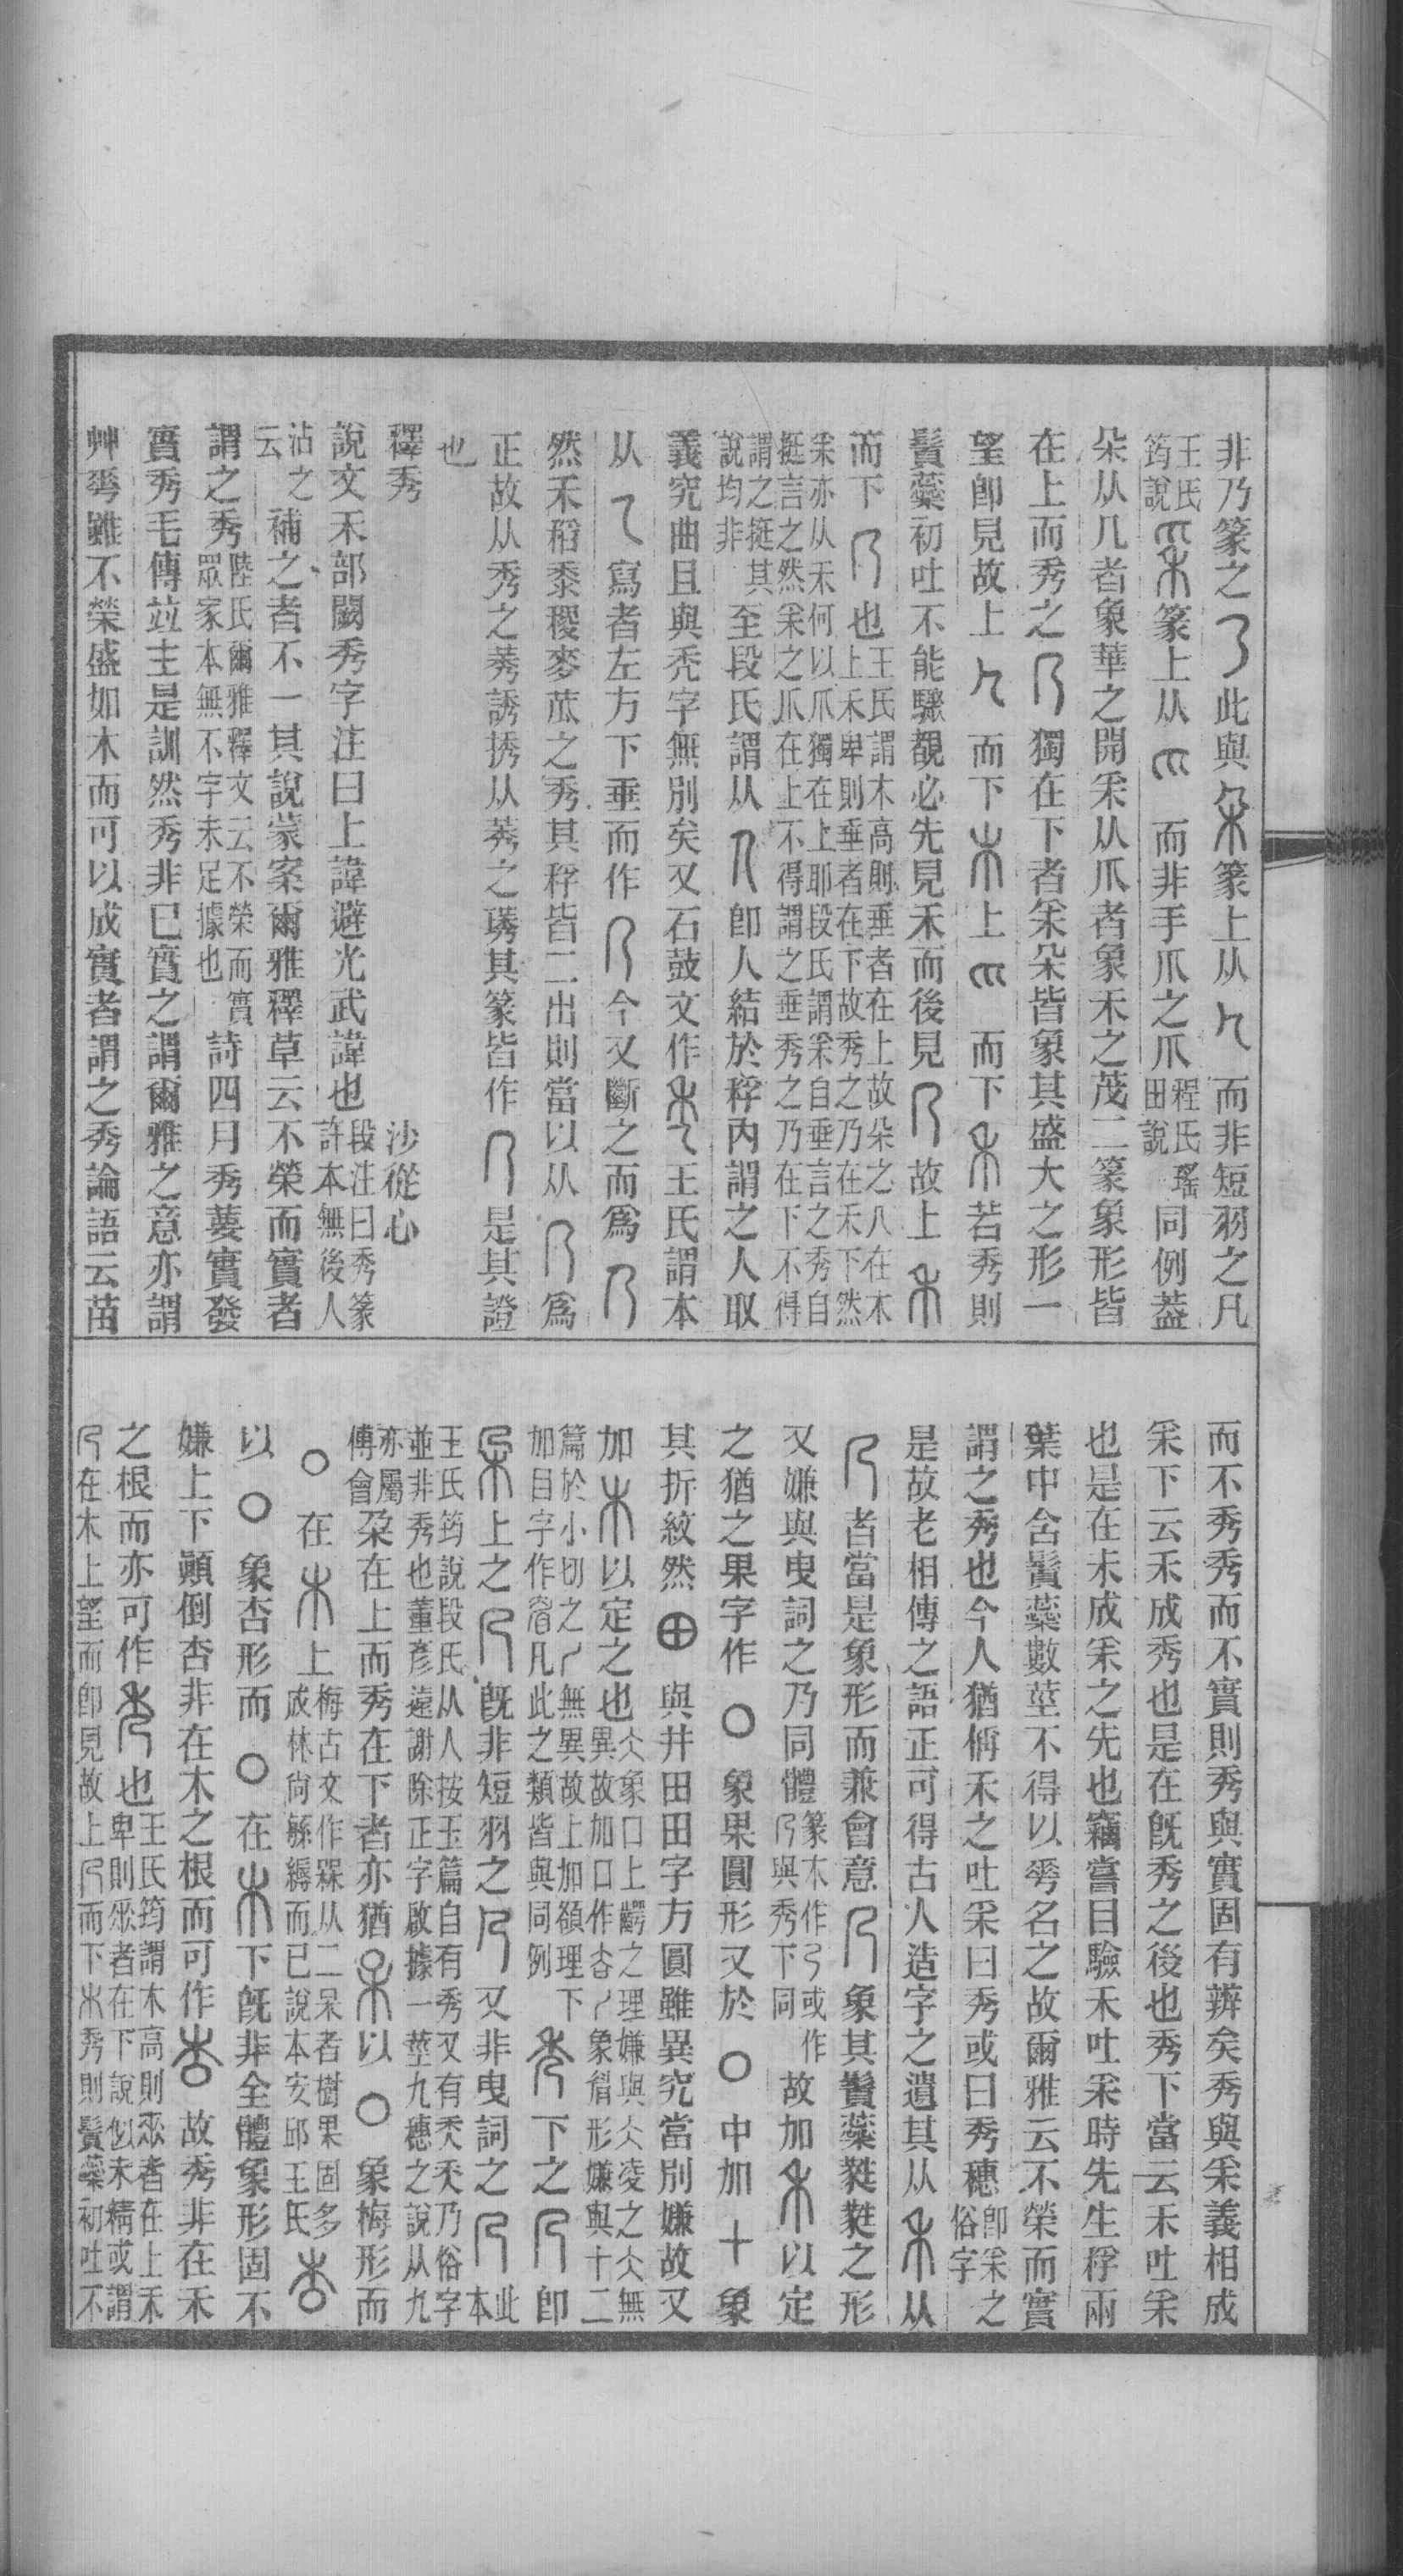 非乃篆之了此與朵篆上从几而非短羽之几
王氏筠說采篆上从爪而非手爪之爪程氏瑤田說同例葢
朵从几者象華之開采从爪者象禾之茂二篆象形皆
在上而秀之乃獨在下者采朵皆象其盛大之形一
望卽見故上几而下木上爪而下禾若秀則
鬚蘂初吐不能驟覩必先見禾而後見乃故上禾
而下乃也王氏謂木高則垂者在上故朵之几在木上禾卑則垂者在下故秀之乃在禾下然
采亦从禾何以爪獨在上耶段氏謂采自垂言之秀自挺言之然采之爪在上不得謂之垂秀之乃在下不得
謂之挺其說均非至段氏謂从人卽人結於稃內謂之人取
義究曲且與禿字無別矣又石鼓文作秀王氏謂本
从乁寫者左方下垂而作乃今又斷之而爲乃
然禾稻黍稷麥苽之秀其稃皆二出則當以从乃爲
正故从秀之莠誘㧦从莠之琇其篆皆作乃是其證
也
釋秀 沙從心
說文禾部闕秀字注曰上諱避光武諱也段注曰秀篆許本無後人
沾之云補之者不一其說蒙案爾雅釋草云不榮而實者
謂之秀陸氏爾雅釋文云不榮而實眾家本無不字未足據也詩四月秀葽實發
實秀毛傳竝主是訓然秀非巳實之謂爾雅之意亦謂
艸㠭雖不榮盛如木而可以成實者謂之秀論語云苗
而不秀秀而不實則秀與實固有辨矣秀與采義相成
采下云禾成秀也是在旣秀之後也秀下當云禾吐采
也是在未成采之先也竊嘗目驗禾吐采時先生稃兩
葉中含鬚蘂數莖不得以䔢名之故爾雅云不榮而實
謂之秀也今人猶偁禾之吐采曰秀或曰秀穗卽采之俗字
是故老相傳之語正可得古人造字之遺其从禾从
乃者當是象形而兼會意乃象其鬚蘂蕤蕤之形
又嫌與曳詞之乃同體篆木作乃或作乃與秀下同故加禾以定
之猶之果字作〇象果圓形又於〇中加十象
其折紋然⊕與井田田字方圓雖異究當別嫌故又
加木以定之也仌象口上齶之理嫌與仌凌之仌無異故加口作𧮫象眉形嫌與十二
篇於小切之無異故上加頟理下加目字作眉凡此之類皆與同例秀下之乃卽
朵上之几旣非短羽之几又非曳詞之乃此本
王氏筠說段氏从人按玉篇自有秀又有禿禿乃俗字並非秀也董彥遠謝除正字啟據一莖九穗之說从九
亦屬傅會朵在上而秀在下者亦猶杲以〇象梅形而
〇在木上梅古文作槑从二呆者樹果固多成林尙緜縟而已說本安邱王氏杏
以〇象杏形而〇在木下旣非全體象形固不
嫌上下顚倒杏非在木之根而可作杏故秀非在禾
之根而亦可作秀也王氏筠謂木高則𠂹者在上禾卑則𠂹者在下說似未精或謂
几在木上望而卽見故上几而下木秀則鬚蘂初吐不